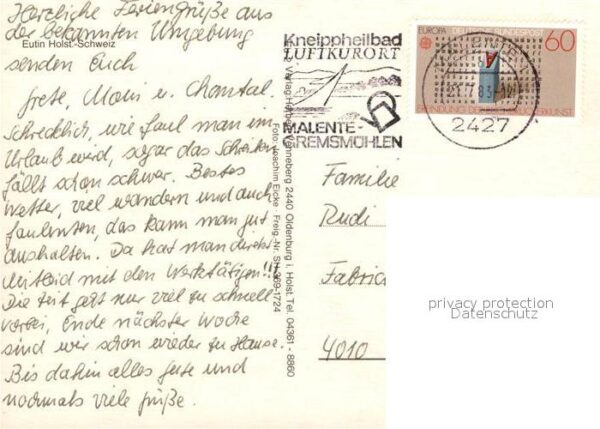 Herzliche Feriengrüße aus
der bekannten Umgebung
Eutin Holst.-Schweiz
senden Euch
Grete, Moni u. Chantal.
Schrecklich, wie faul man im
Urlaub wird, sogar das Schreiben
fällt schon schwer. Bestes
Wetter, viel wandern und auch
faulenzen, das kann man gut
aushalten. Da hat man direkt
Mitleid mit den Werktätigen!!!
Die Zeit geht nur viel zu schnell
vorbei, Ende nächster Woche
sind wir schon wieder zu Hause.
Bis dahin alles Gute und
nochmals viele Grüße.
Verlag Herbert Wenneberg 2440 Oldenburg i. Holst. Tel. 04361 - 8860
Foto: Joachim Eicke - Freig.-Nr. SH 369-1724
Kneippheilbad
LUFTKURORT
MALENTE-
GREMSMÜHLEN
EUROPA DEUTSCHE BUNDESPOST
60
ERFINDUNG DER BUCHDRUCKERKUNST
2427
Familie
Rudi
Fabric
4010
privacy protection
Datenschutz